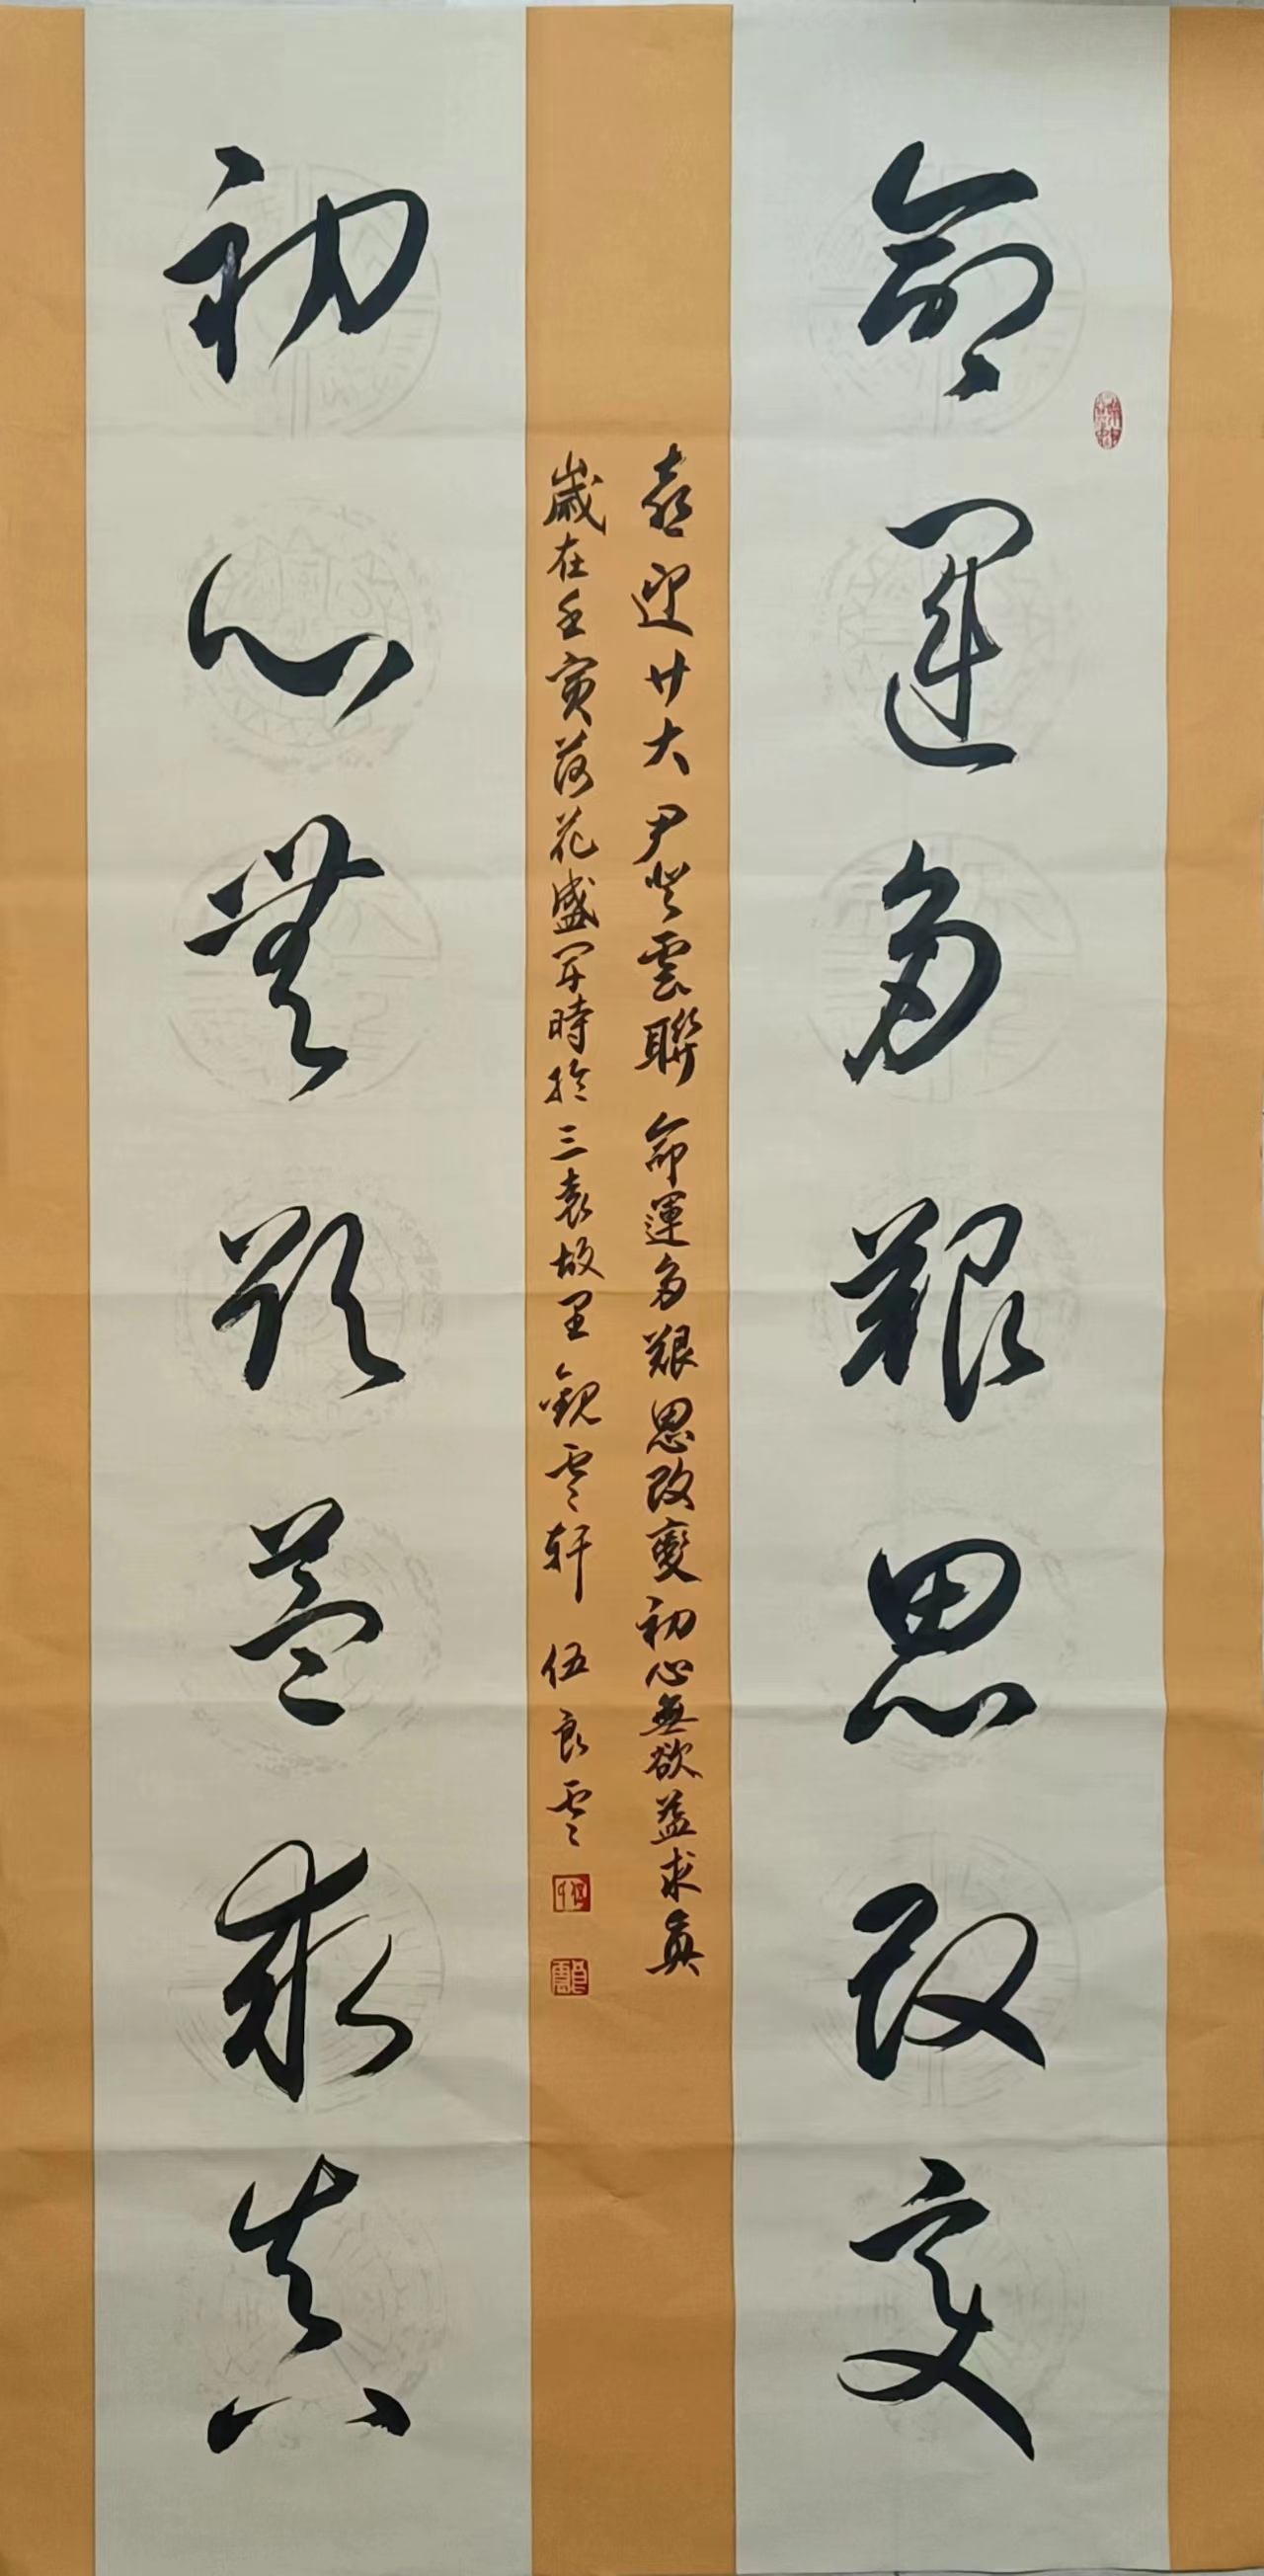 命運多艱思改變
初心無欲益求真
喜迎廿大尹登雲聯 命運多艱思改變初心無欲益求真
歲在壬寅荷花盛開時於三袁故里觀雲軒 伍良雲